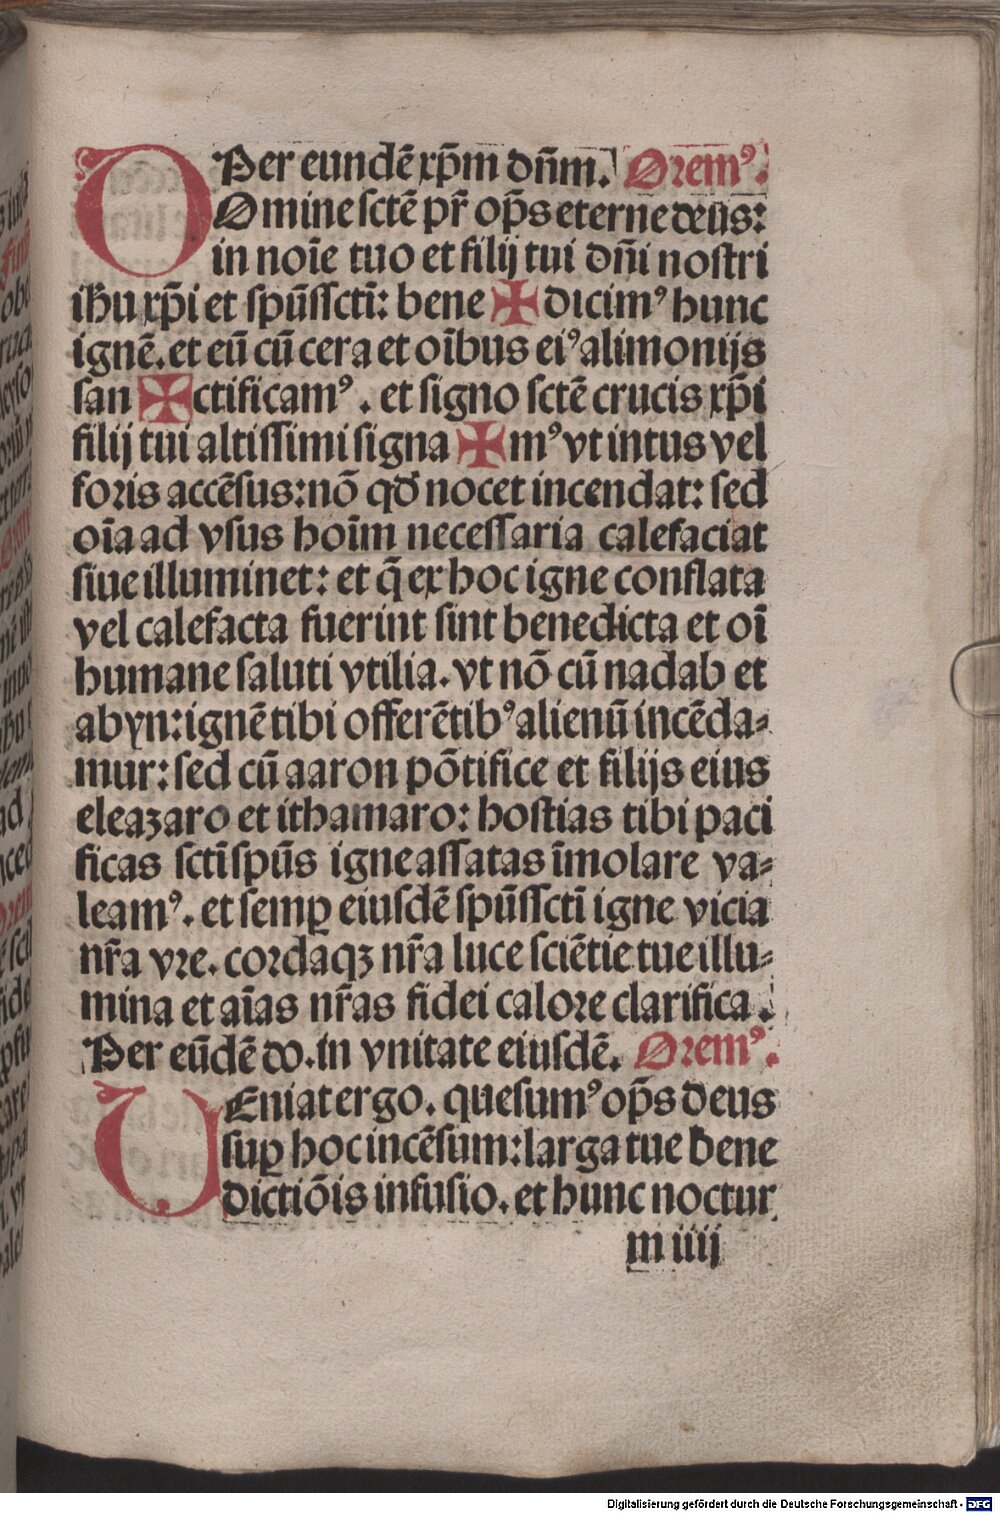 Per eundē xp̄m dn̄m. Oremꝰ.
DOmine sctē pr̄ op̄s eterne deus:
in noīe tuo et filij tui dn̄i nostri
ihu xp̄i et sp̄ūssctī: bene ✠ dicimꝰ hunc
ignē. et eū cū cera et oībus eiꝰ alimonijs
san ✠ ctificamꝰ. et signo sctē crucis xp̄i
filij tui altissimi signa ✠ mꝰ vt intus vel
foris accēsus: nō qđ nocet incendat: sed
oīa ad vsus hoīm necessaria calefaciat
siue illuminet: et q̄ ex hoc igne conflata
vel calefacta fuerint sint benedicta et oī
humane saluti vtilia. vt nō cū nadab et
abyn: ignē tibi offerētibꝰ alienū incēda⸗
mur: sed cū aaron pōtifice et filijs eius
eleazaro et ithamaro: hostias tibi paci
ficas sctīsp̄ūs igne assatas īmolare va⸗
leamꝰ. et semꝑ eiusdē sp̄ūsscti igne vicia
nr̄a vre. cordaqꝫ nr̄a luce sciētie tue illu⸗
mina et aīas nr̄as fidei calore clarifica.
Per eūdē do. in vnitate eiusdē. Oremꝰ.
VEniat ergo. quesumꝰ op̄s deus
suꝑ hoc incēsum: larga tue bene
dictiōis infusio. et hunc noctur
m iiij
Digitalisierung gefördert durch die Deutsche Forschungsgemeinschaft - DFG